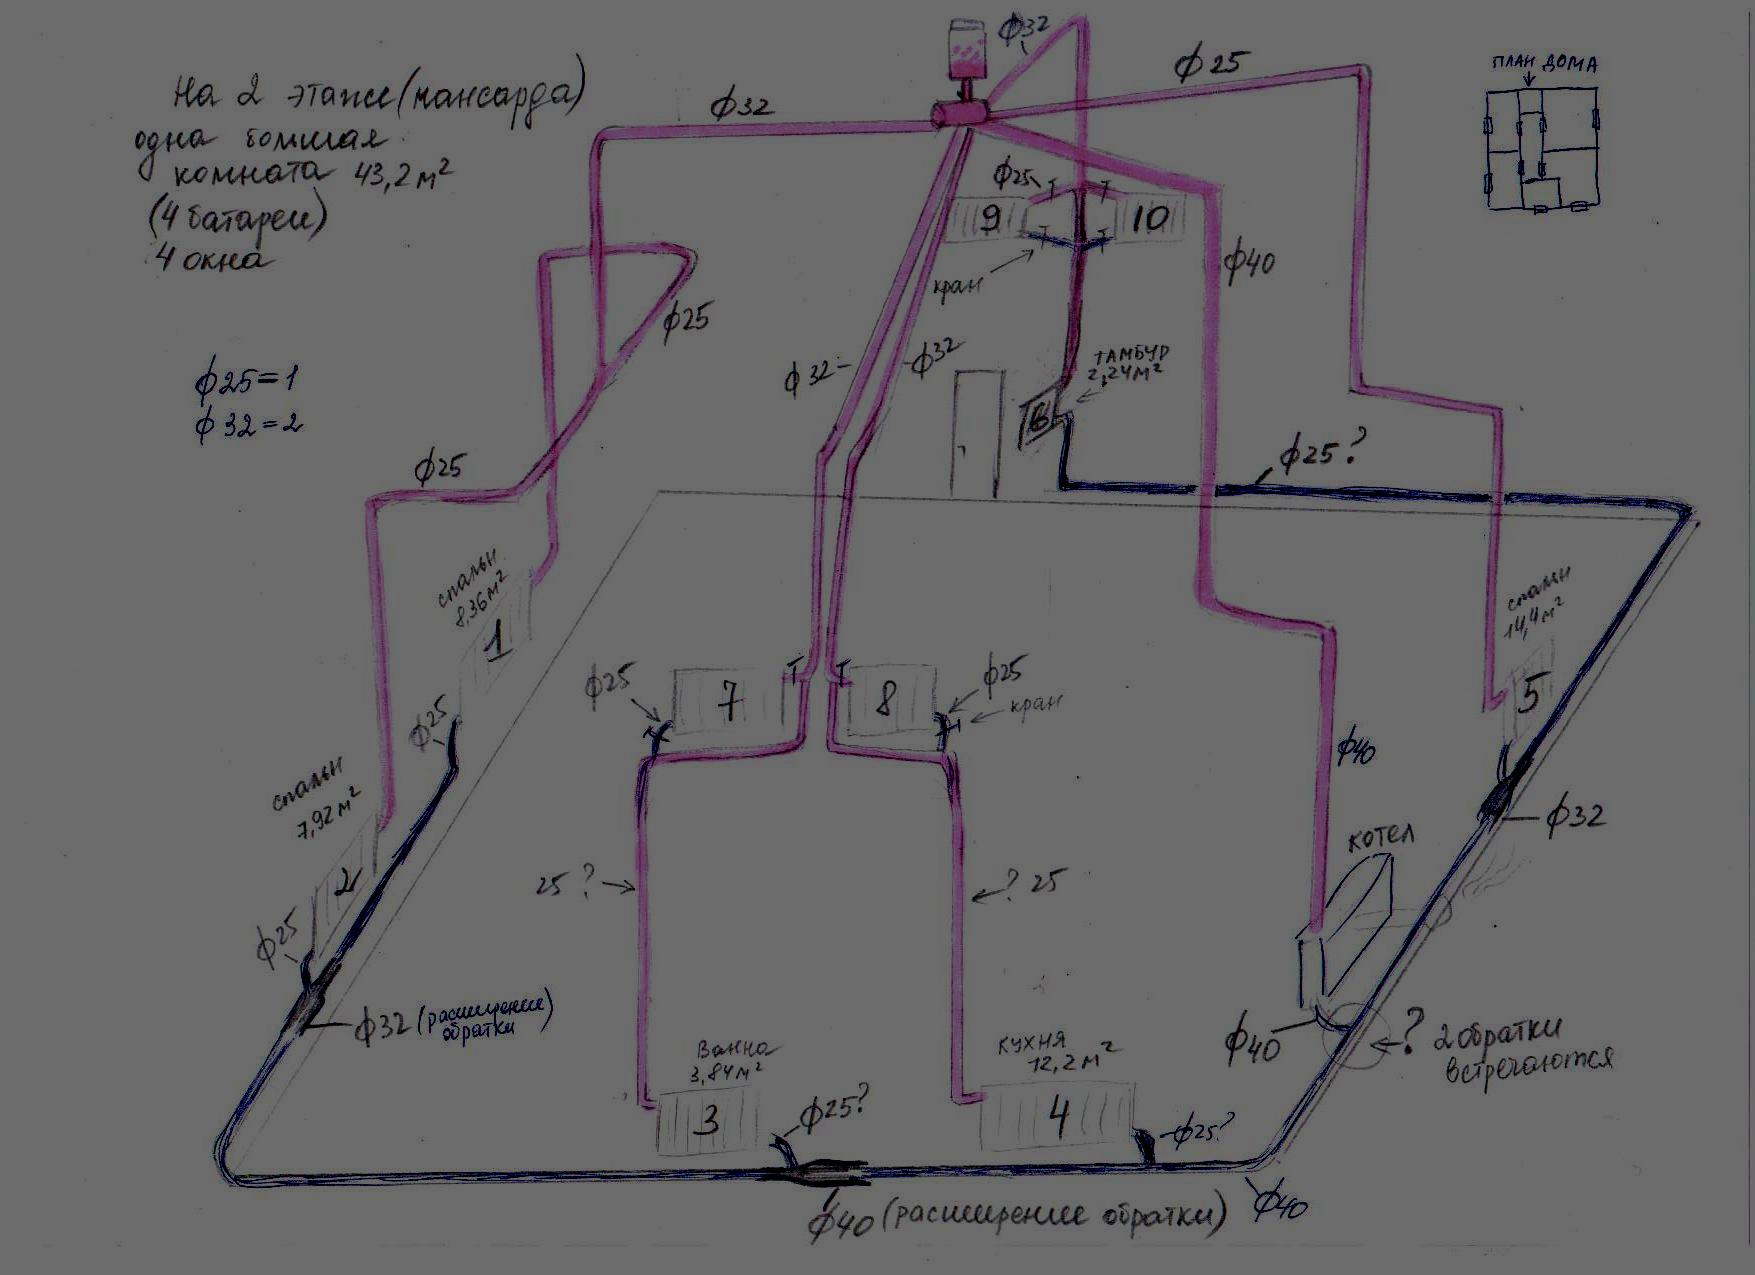 На 2 этаже (мансарда)
одна большая
комната 43,2 м²
(4 батареи)
4 окна
ф25=1
ф32=2
ф32
ф32
ф25
ПЛАН ДОМА
ф25
9
10
кран
ф40
ф25
ф32
ф32
ТАМБУР
2,24м²
6
ф25?
ф25
спальн
8,36м²
1
спальн
14,4м²
5
ф25
7
8
ф25
кран
ф25
ф40
спальн
7,92м²
2
КОТЕЛ
ф32
25 ?
? 25
ф25
ф32 (расширение
обратки)
ф40
? 2 обратки
встречаются
Ванна
3,84м²
3
КУХНЯ
12,2 м²
4
ф25?
ф25?
ф40 (расширение обратки)
ф40